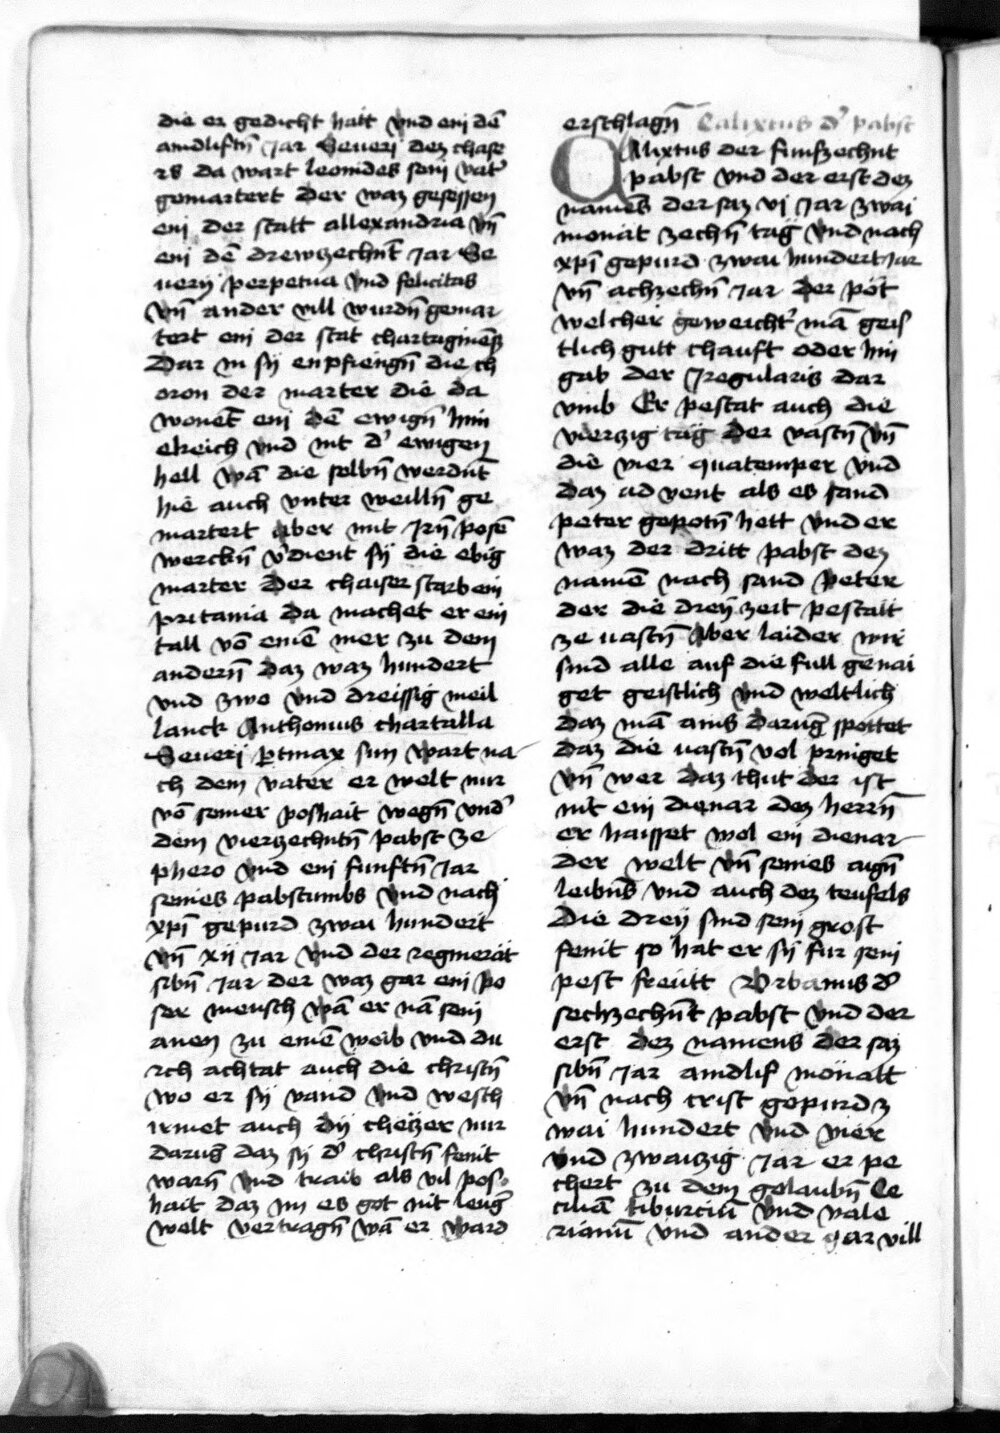 die er gedicht hatt vnd eni dē
aindlifftn̄ Jar Seueri dez chaise
rs da wart leonides sein vatˀ
gemartert der waz gesessen
eni der statt allexandria vn̄
eni dē drewzechnt̄ Jar Se
uerij perpetua vnd felicitas
vn̄ ander vill wurdn̄ gemar
tert eni der stat chartaginens̄
Dar in sij enpfiengn̄ die ch
oron der marter die da
wonet̄ eni dē ewign̄ him
elreich vnd nit dˀ ewigen
hell wā die selbn̄ werdnt̄
hie auch vnter weilln̄ ge
martert aber mit Jrn̄ posē
werckn̄ vˀdient sij die ebig
marter der chaiser starb eni
pritania da machet er ein
tall vō einē mer zu dem
andern̄ daz waz hundert
vnd zwo vnd dreissig meil
lanck Anthonius chartalla
Seueri sun wart na
ch dem vater er welt nur
vō seiner poshait wegn̄ vndˀ
dem vierzechntn̄ pabst ze
phero vnd eni funftn̄ Jar
seines pabstumbs vnd nach
xp̄i gepurd zwai hundert
vn̄ xij Jar vnd der regnierāt
sibn̄ Jar der waz gar eni po
ser mensch wā er nā sein
anen zu einē weib vnd du
rch achtat auch die christn̄
wo er sij vand vnd westh
irmet auch dij chetzer nur
darub̄ daz sij dˀ christn̄ feint
warn̄ vnd traib als vil pos
hait daz in es got nit lenḡ
welt vertragn̄ wā er ward
erschlagn̄ Calixtus dˀ pabst
CAlixtus der funfzechnt
pabst vnd der erst dez
namēs der saz vi Jar zwai
monat zechn̄ tag vnd nach
xp̄i gepurd zwai hundert Jar
vn̄ achzechn̄ Jar der pot
welcher geweichtˀ mā geis
tlich gutt chauft oder hin
gab der Jregularis dar
vmb Er pestat auch die
vierzig tag der vastn̄ vn̄
die vier quatemper vnd
daz aduent als es sand
peter gepotn̄ hett vnd er
waz der dritt pabst dez
namē nach sand peter
der die dreÿ zeit pestatt
ze uastn̄ Aber laider wir
sind alle auf die full genai
get geistlich vnd weltlich
daz mā ains darub̄ spottet
daz die uastn̄ vol pringet
vn̄ wer daz thut der ist
nit eni dienar dez herrn̄
er haisset wol eni dienar
der welt vn̄ seines aign̄
leibns vnd auch dez teufels
die dreÿ sind sein grost
feint so hat er sij fur sein
pest freutt Vrbanus dˀ
sechzechnt̄ pabst vnd der
erst dez namens der saz
sibn̄ Jar aindlif monatt
vn̄ nach crist gepurd z
wai hundert vnd vier
vnd zwaizig Jar er pe
chert zu dem gelaubn̄ Ce
ciliā tiburciū vnd vale
rianū vnd ander gar vill